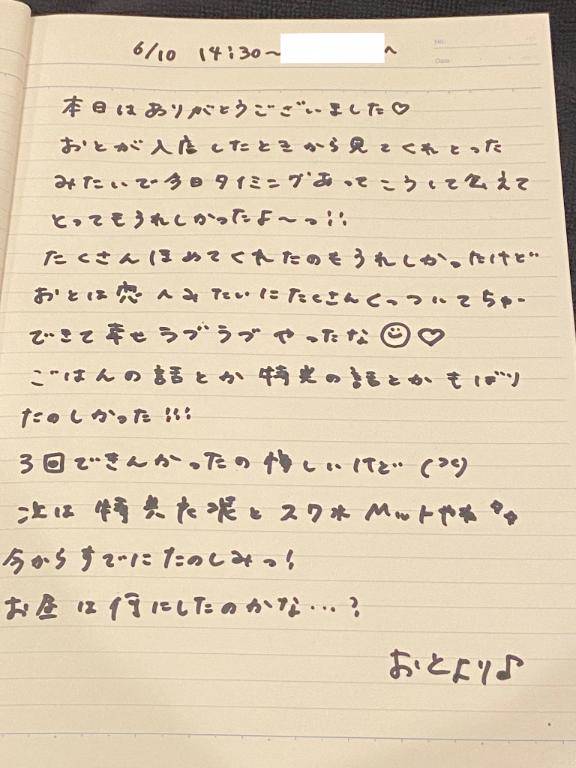 No.
Date
6/10 14:30〜 へ
本日はありがとうございました♡
おとが入店したときから見てくれとった
みたいで今日タイミングあってこうして会えて
とってもうれしかったよ〜っ!!
たくさんほめてくれたのもうれしかったけど
おとは恋人みたいにたくさんくっついてちゅー
できて幸せラブラブやったな☺♡
ごはんの話とか 特急の話とかもばり
たのしかった!!!
3回できんかったの悔しいけど
次は 特急 と スワホ マットやね
今からすでにたのしみっ!
お昼は何にしたのかな…?
おとより♪